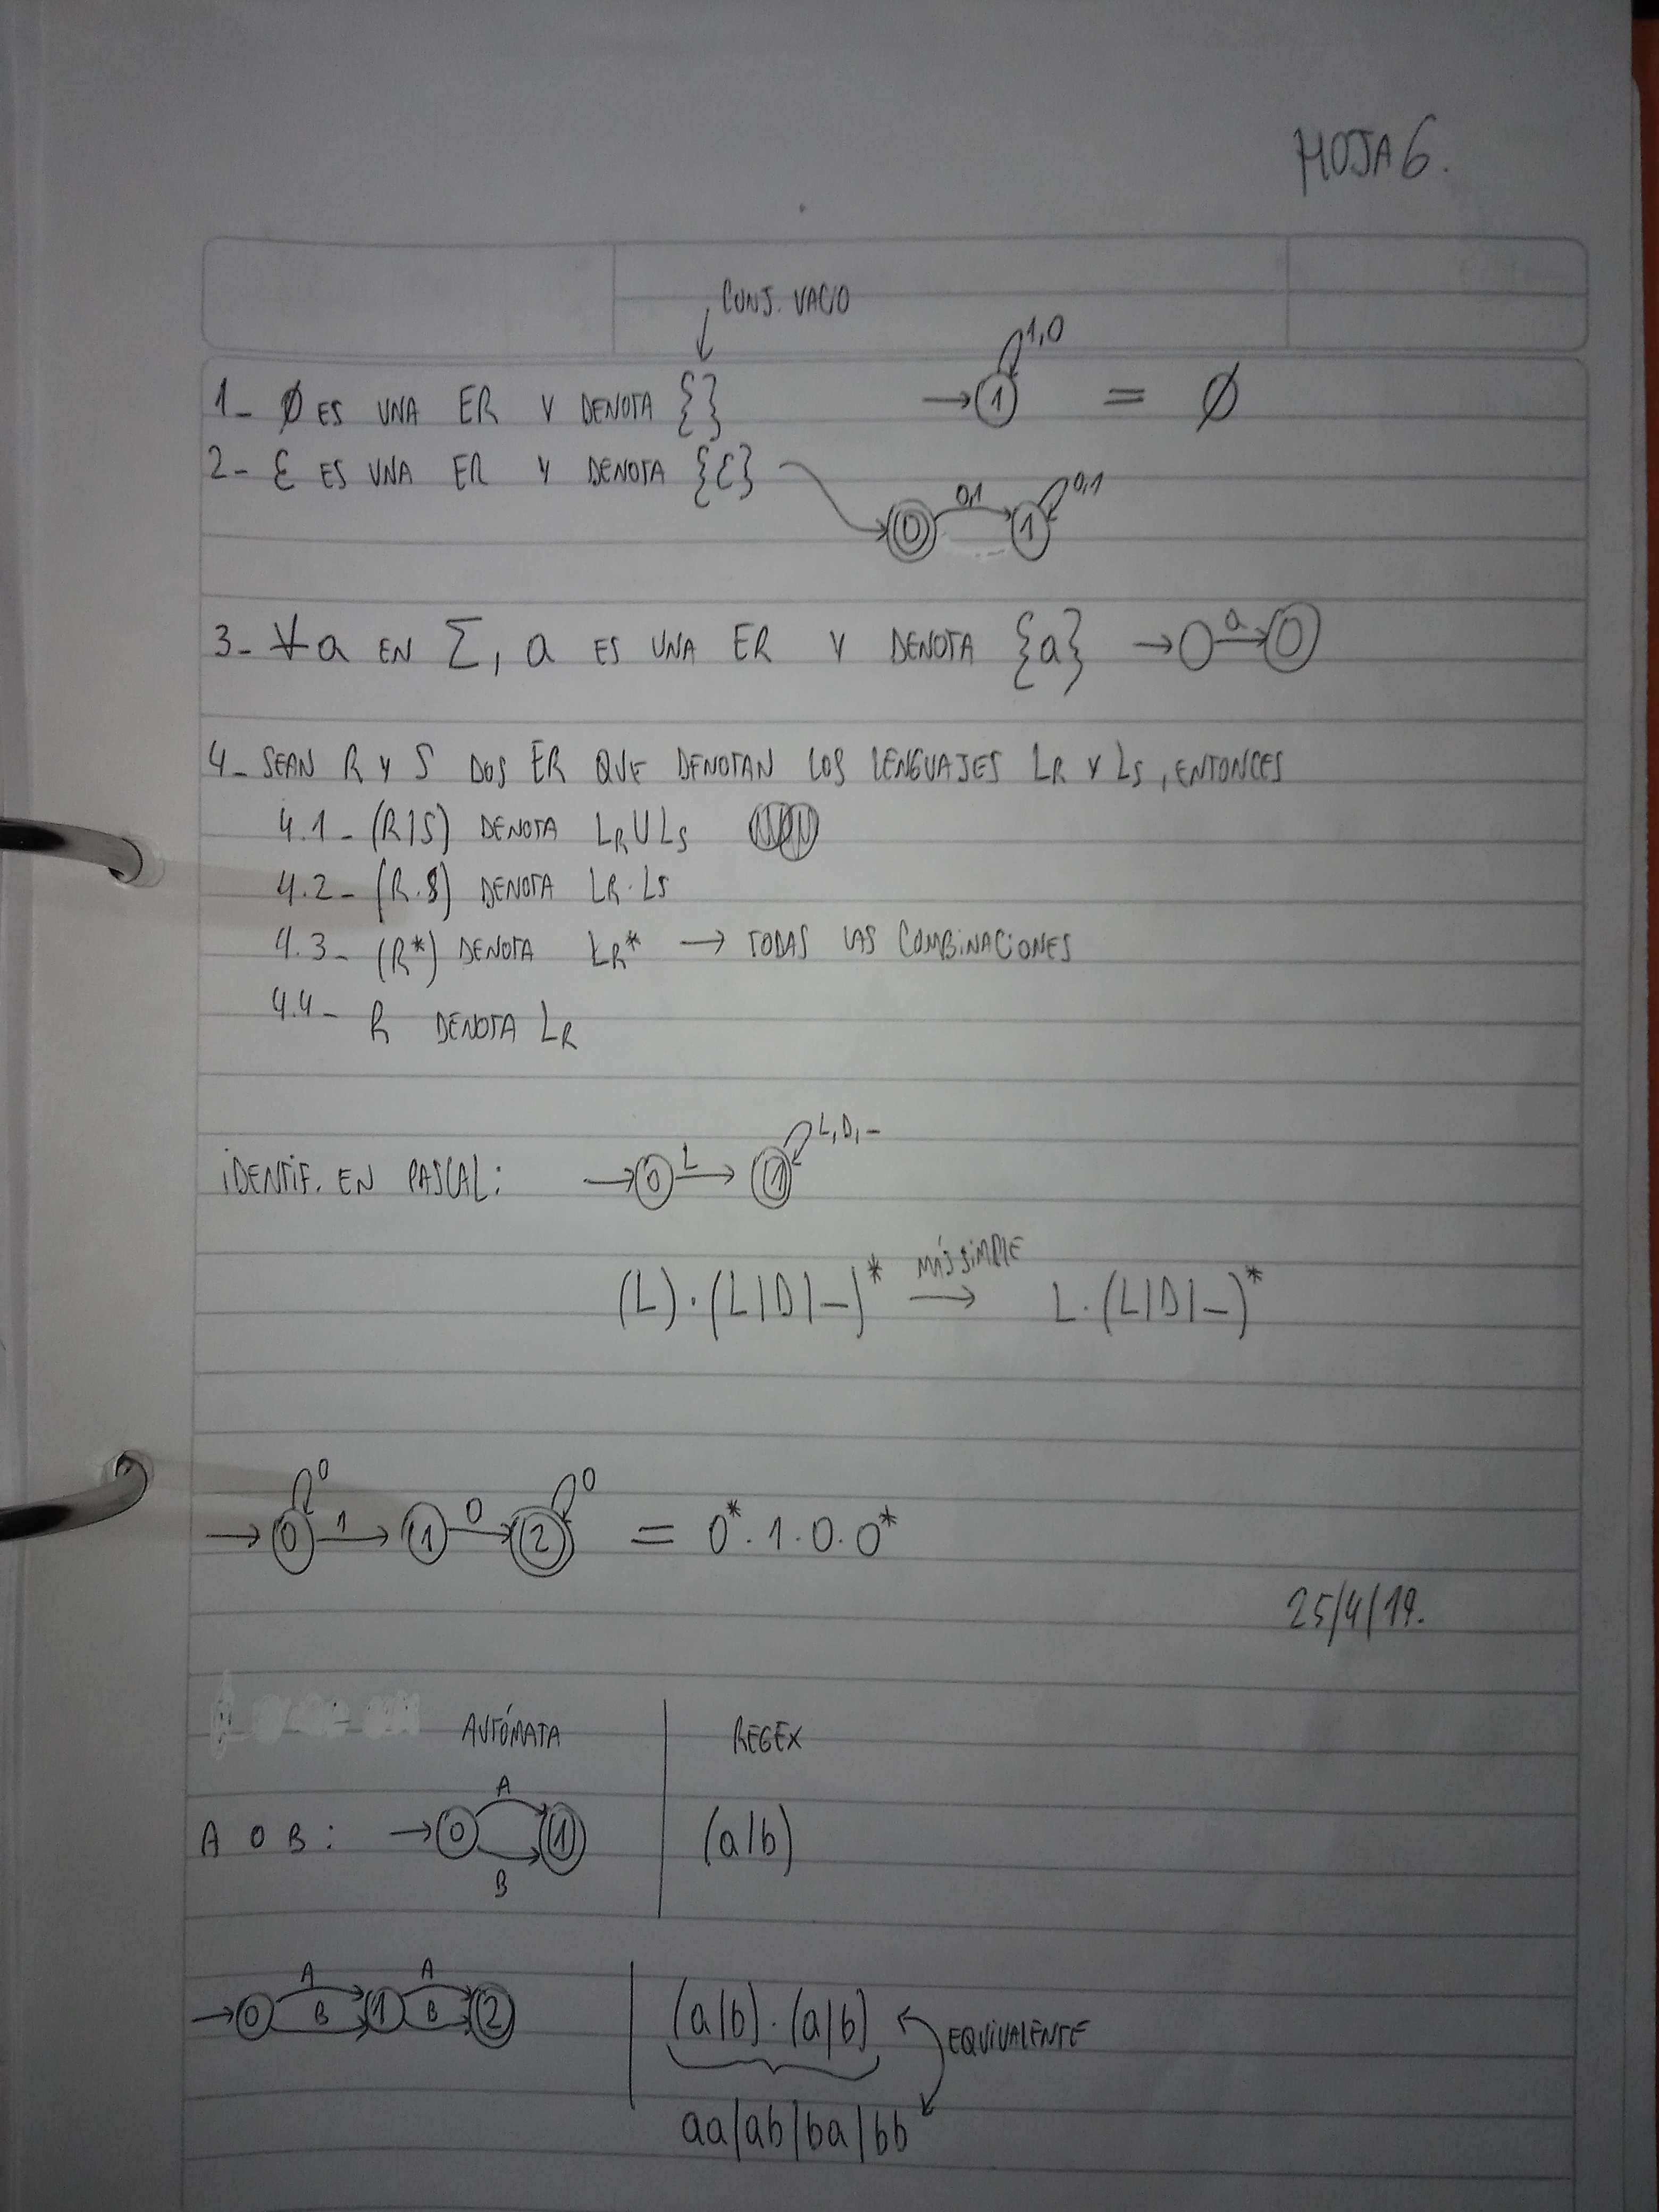 HOJA 6.
CONJ. VACIO
1- Ø ES UNA ER Y DENOTA {}
1,0
→ 1 = Ø
2- ε ES UNA ER Y DENOTA {ε}
0 0,1 1 0,1
3- ∀a EN Σ, a ES UNA ER Y DENOTA {a} → a
4- SEAN R Y S DOS ER QUE DENOTAN LOS LENGUAJES LR Y LS, ENTONCES
4.1- (R|S) DENOTA LR U LS
4.2- (R.S) DENOTA LR.LS
4.3- (R*) DENOTA LR* → TODAS LAS COMBINACIONES
4.4- R DENOTA LR
IDENTIF. EN PASCAL: → 0 L → 1 L,D,_
(L).(L|D|_)* MÁS SIMPLE → L.(L|D|_)*
→ 0 0 1 → 1 0 → 2 0 = 0*.1.0.0*
25/4/19.
AUTÓMATA REGEX
A O B: → 0 A B 1 (a|b)
→ 0 A B 1 A B 2 (a|b).(a|b) EQUIVALENTE
aa|ab|ba|bb